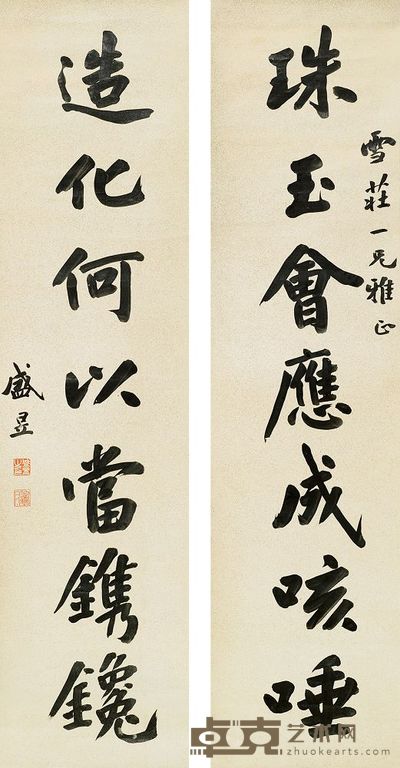 雪莊一兄雅正
珠玉會應成咳唾
造化何以當鐫鑱
盛昱
卓克艺术网
zhuokearts.com